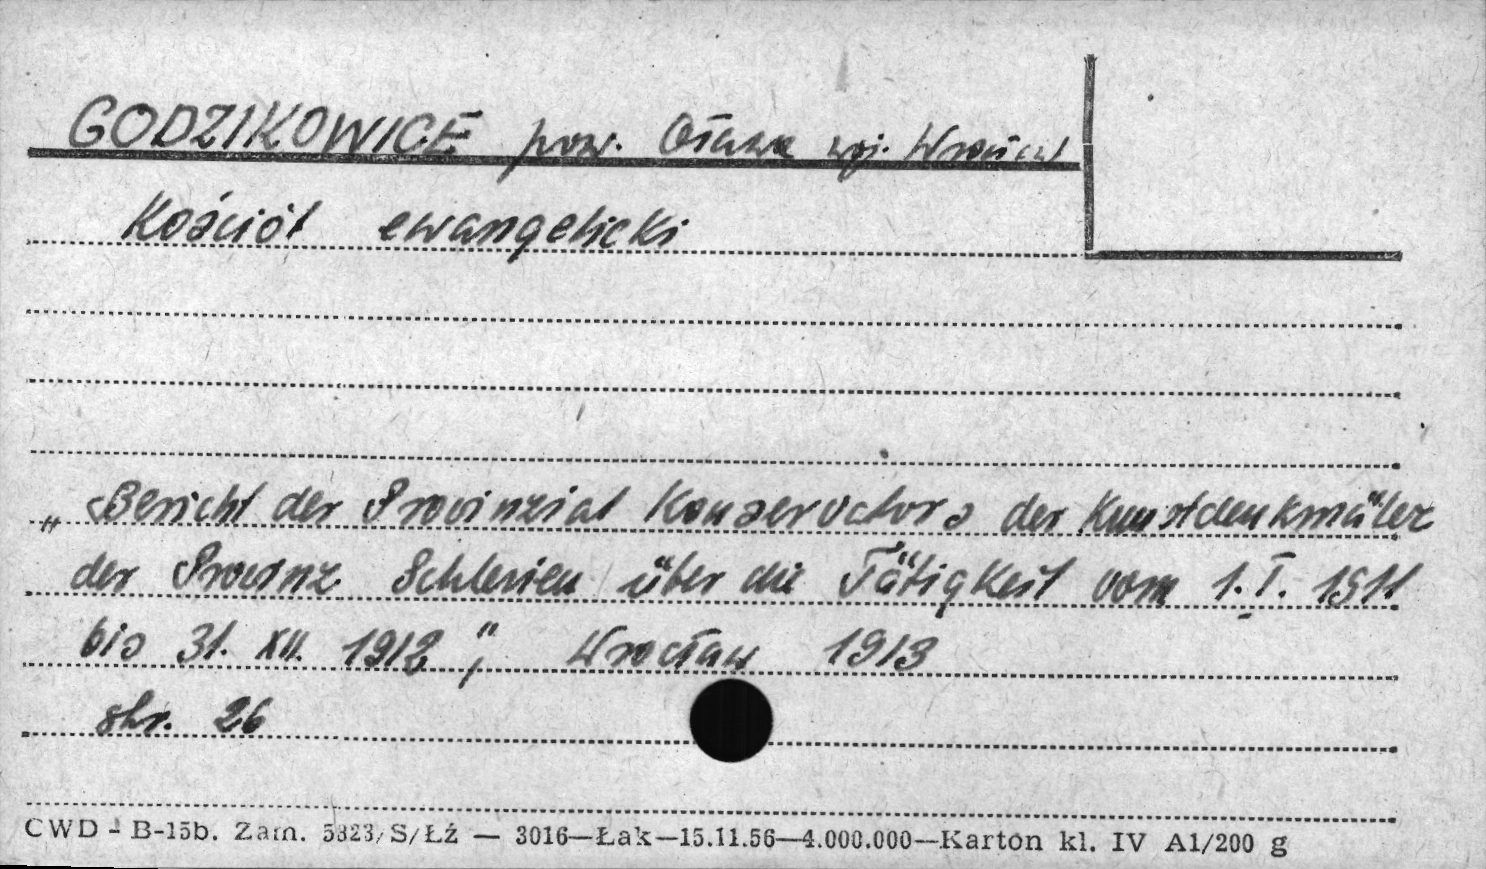 GODZIKOWICE pow. Oława woj. Wrocław
Kościół ewangelicki
„Bericht der Provinzial Konservators der Kunstdenkmäler
der Provinz Schlesien über die Tätigkeit vom 1.I. 1911
bis 31. XII. 1912", Wrocław 1913
str. 26
CWD - B-15b. Zam. 5323/S/Łź — 3016—Łak—15.11.56—4.000.000—Karton kl. IV A1/200 g